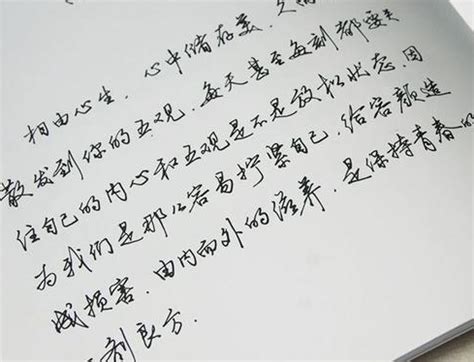 相由心生.心中储存美,久
散发到你的五观.每天甚至每刻都要关
住自己的内心和五观是不是放松状态.因
为我们是那么容易拧紧自己.给容颜造
成损害.由内而外的滋养.是保持青春的
剂良方.